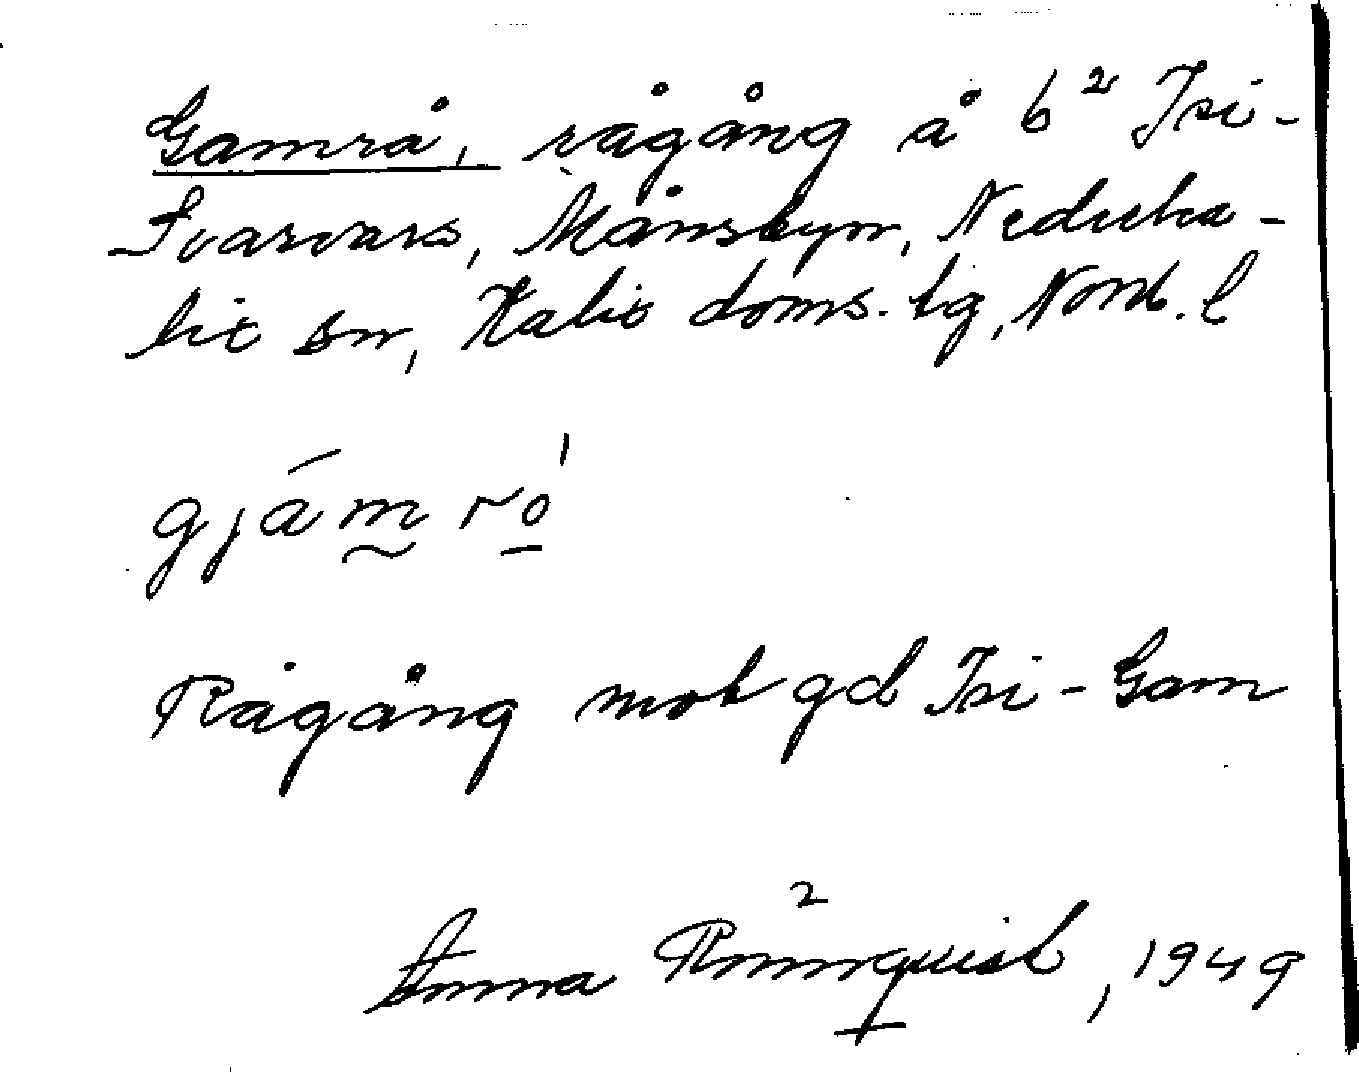 Gamrå, rågång å b² Isi-
Svarvars, Månsbyn, Nederka-
lix sn, Kalix doms. lg, Norrb. l
gjámró'
Rågång mot gd Isi-Gam
Anna Rönnquist², 1949